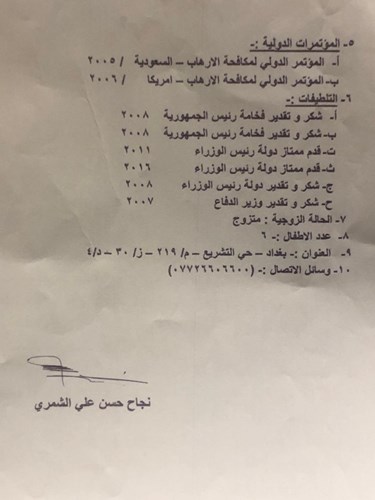 ٥- المؤتمرات الدولية :-
أ- المؤتمر الدولي لمكافحة الارهاب – السعودية / ٢٠٠٥
ب- المؤتمر الدولي لمكافحة الارهاب – امريكا / ٢٠٠٦
٦- التلطيفات :-
أ- شكر و تقدير فخامة رئيس الجمهورية ٢٠٠٨
ب- شكر و تقدير فخامة رئيس الجمهورية ٢٠٠٨
ت- قدم ممتاز دولة رئيس الوزراء ٢٠١١
ث- قدم ممتاز دولة رئيس الوزراء ٢٠١٦
ج- شكر و تقدير دولة رئيس الوزراء ٢٠٠٨
ح- شكر و تقدير وزير الدفاع ٢٠٠٧
٧- الحالة الزوجية : متزوج
٨- عدد الاطفال :- ٦
٩- العنوان :- بغداد – حي التشريع – م/ ٢١٩ – ز/ ٣٠ – د/٤
١٠- وسائل الاتصال :- (٠٧٧٢٦٦٠٦٦٠٠)
نجاح حسن علي الشمري